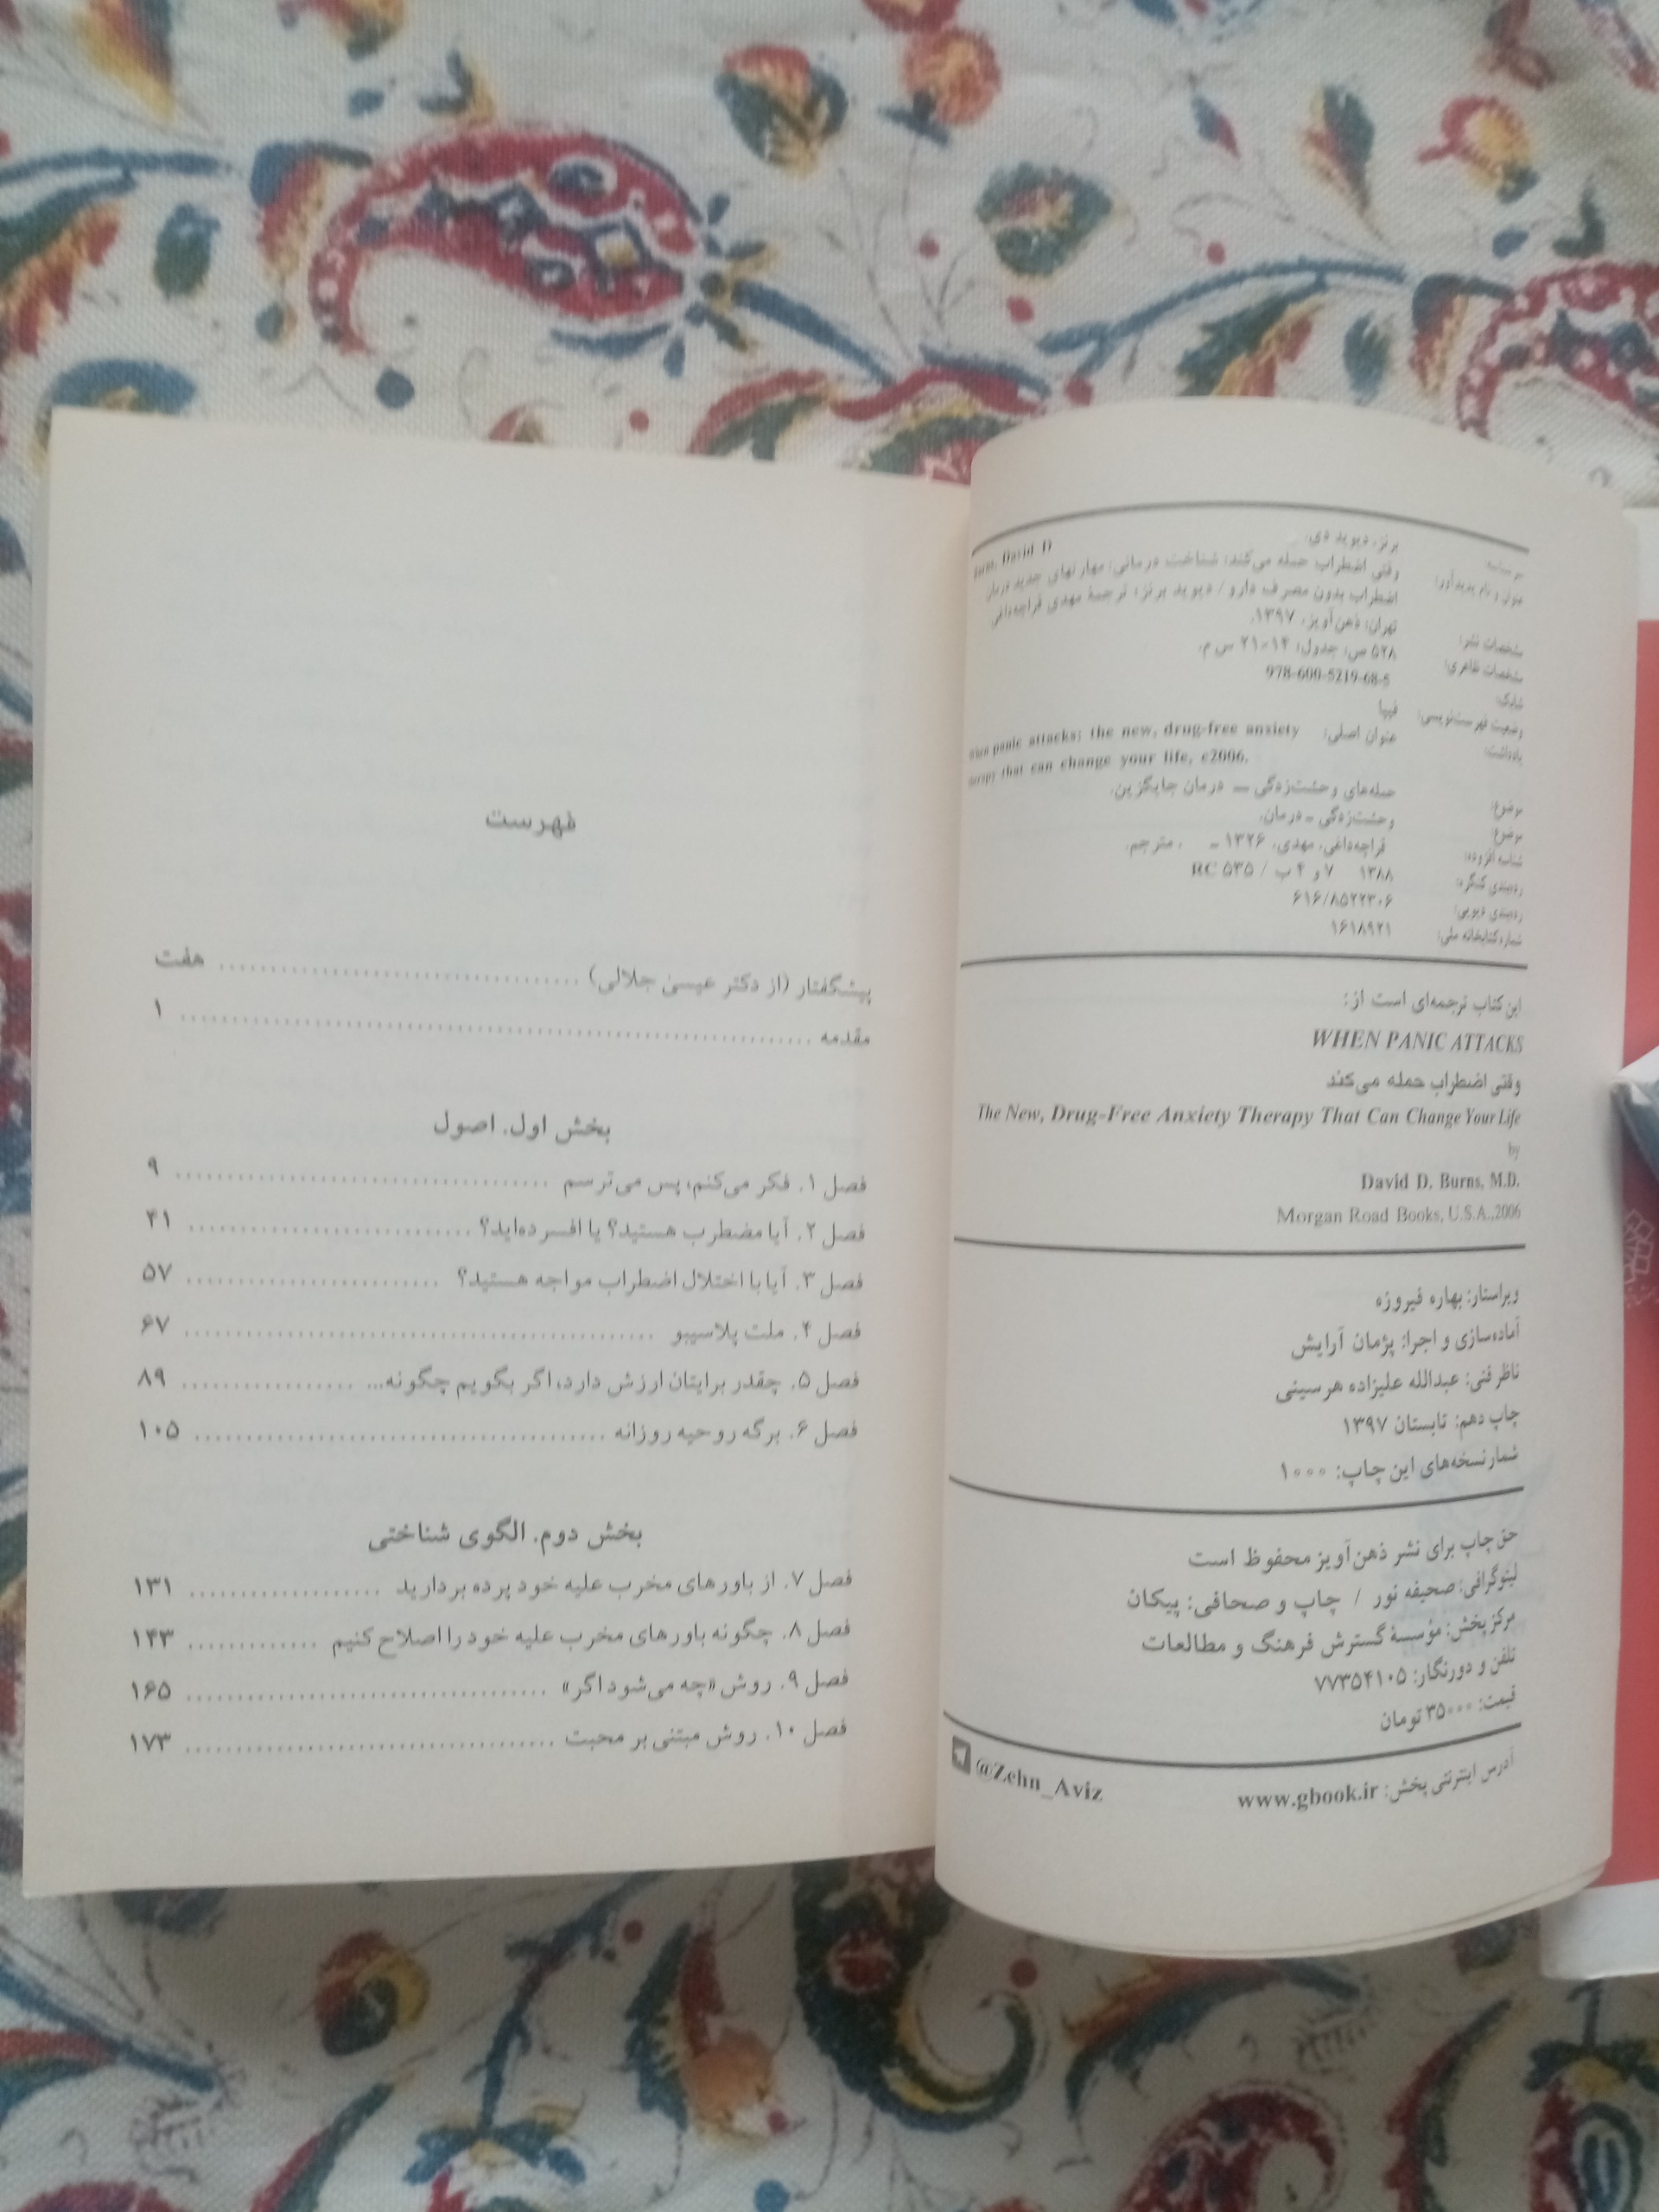 سرشناسه: برنز، دیوید دی. Burns, David D
عنوان و نام پدیدآور: وقتی اضطراب حمله می‌کند: شناخت درمانی: مهارتهای جدید درمان
اضطراب بدون مصرف دارو / دیوید برنز؛ ترجمهٔ مهدی قراچه‌داغی
مشخصات نشر: تهران: ذهن‌آویز، ۱۳۹۷.
مشخصات ظاهری: ۵۲۸ ص: جدول؛ ۱۴×۲۱ س م.
شابک: 978-600-5219-68-5
وضعیت فهرست‌نویسی: فیپا
یادداشت: عنوان اصلی: when panic attacks: the new, drug-free anxiety
therapy that can change your life, c2006.
موضوع: حمله‌های وحشت‌زدگی ـــ درمان جایگزین.
موضوع: وحشت‌زدگی ـ درمان.
شناسه افزوده: قراچه‌داغی، مهدی، ۱۳۲۶ ـ ، مترجم.
رده‌بندی کنگره: ۱۳۸۸ ۷ و ۴ ب / RC ۵۳۵
رده‌بندی دیویی: ۶۱۶/۸۵۲۲۳۰۶
شماره کتابخانه ملی: ۱۶۱۸۹۲۱
این کتاب ترجمه‌ای است از:
WHEN PANIC ATTACKS
وقتی اضطراب حمله می‌کند
The New, Drug-Free Anxiety Therapy That Can Change Your Life
by
David D. Burns, M.D.
Morgan Road Books, U.S.A.,2006
ویراستار: بهاره فیروزه
آماده‌سازی و اجرا: پژمان آرایش
ناظر فنی: عبدالله علیزاده هرسینی
چاپ دهم: تابستان ۱۳۹۷
شمار نسخه‌های این چاپ: ۱۰۰۰
حق چاپ برای نشر ذهن‌آویز محفوظ است
لیتوگرافی: صحیفه نور / چاپ و صحافی: پیکان
مرکز پخش: مؤسسهٔ گسترش فرهنگ و مطالعات
تلفن و دورنگار: ۷۷۳۵۴۱۰۵
قیمت: ۳۵۰۰۰ تومان
آدرس اینترنتی پخش: www.gbook.ir @Zehn_Aviz
فهرست
پیشگفتار (از دکتر عیسی جلالی) .................... هفت
مقدمه .................... ۱
بخش اول. اصول
فصل ۱. فکر می‌کنم، پس می‌ترسم .................... ۹
فصل ۲. آیا مضطرب هستید؟ یا افسرده‌اید؟ .................... ۴۱
فصل ۳. آیا با اختلال اضطراب مواجه هستید؟ .................... ۵۷
فصل ۴. ملت پلاسیبو .................... ۶۷
فصل ۵. چقدر برایتان ارزش دارد، اگر بگویم چگونه... .................... ۸۹
فصل ۶. برگه روحیه روزانه .................... ۱۰۵
بخش دوم. الگوی شناختی
فصل ۷. از باورهای مخرب علیه خود پرده بردارید .................... ۱۳۱
فصل ۸. چگونه باورهای مخرب علیه خود را اصلاح کنیم .................... ۱۴۳
فصل ۹. روش «چه می‌شود اگر» .................... ۱۶۵
فصل ۱۰. روش مبتنی بر محبت .................... ۱۷۳